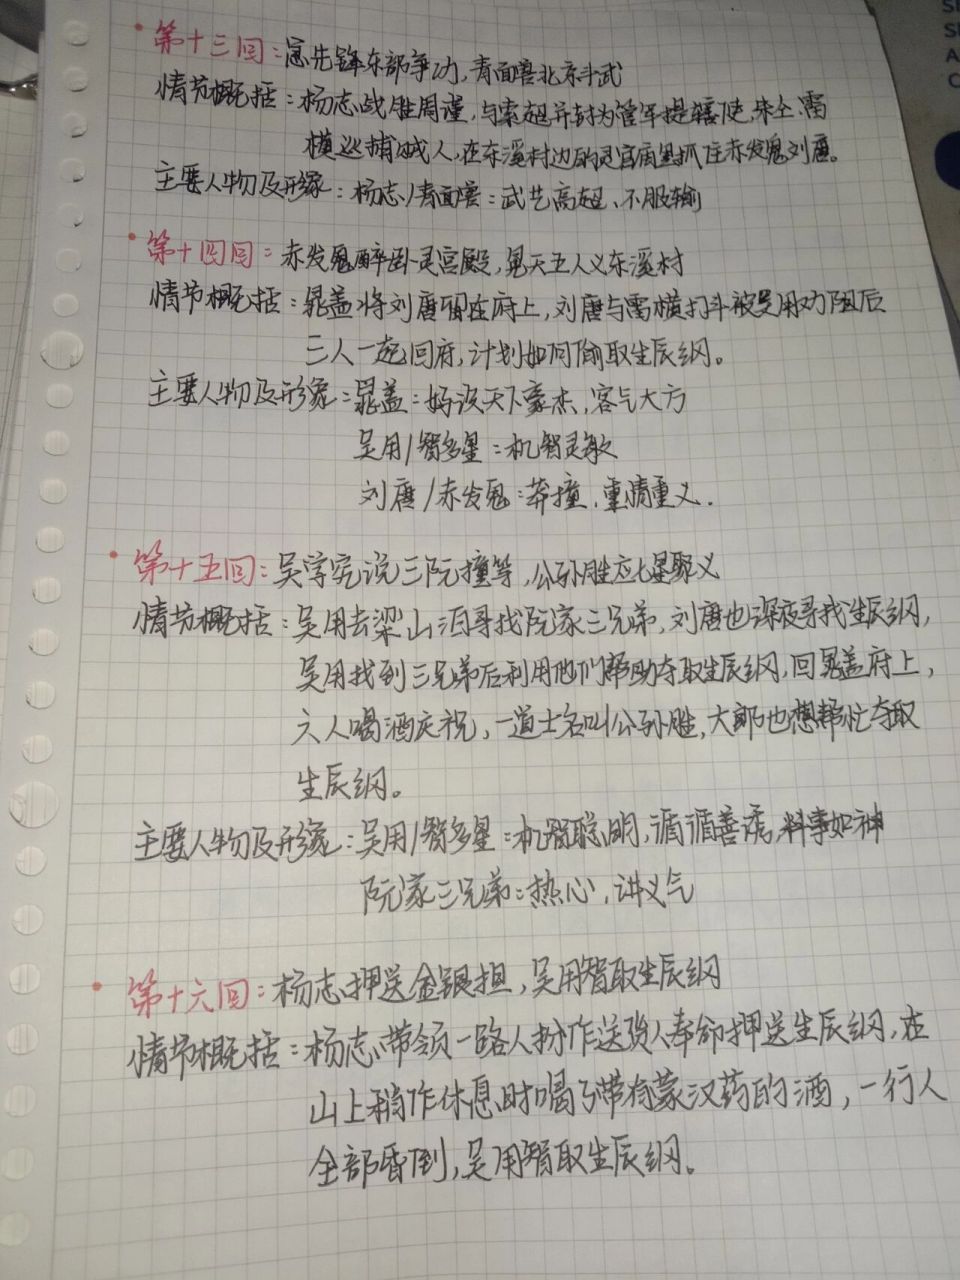 第十三回：急先锋东郭争功，青面兽北京斗武
情节概括：杨志战胜周谨，与索超并封为管军提辖使，朱仝、雷
横巡捕贼人，在东溪村边的灵官庙里抓住赤发鬼刘唐。
主要人物及形象：杨志/青面兽：武艺高超、不服输
第十四回：赤发鬼醉卧灵官殿，晁天王认义东溪村
情节概括：晁盖将刘唐留在府上，刘唐与雷横打斗被吴用劝阻后
三人一起回府，计划如何偷取生辰纲。
主要人物及形象：晁盖：好汉天下豪杰，客气大方
吴用/智多星：机智灵敏
刘唐/赤发鬼：莽撞，重情重义．
第十五回：吴学究说三阮撞筹，公孙胜应七星聚义
情节概括：吴用去梁山泊寻找阮家三兄弟，刘唐也深夜寻找生辰纲，
吴用找到三兄弟后利用他们帮助夺取生辰纲，回晁盖府上，
六人喝酒庆祝，一道士名叫公孙胜，大郎也想帮忙夺取
生辰纲。
主要人物及形象：吴用/智多星：机智聪明，循循善诱，料事如神
阮家三兄弟：热心，讲义气
第十六回：杨志押送金银担，吴用智取生辰纲
情节概括：杨志带领一路人扮作送货人奉命押送生辰纲，在
山上稍作休息时喝了带有蒙汉药的酒，一行人
全部昏倒，吴用智取生辰纲。